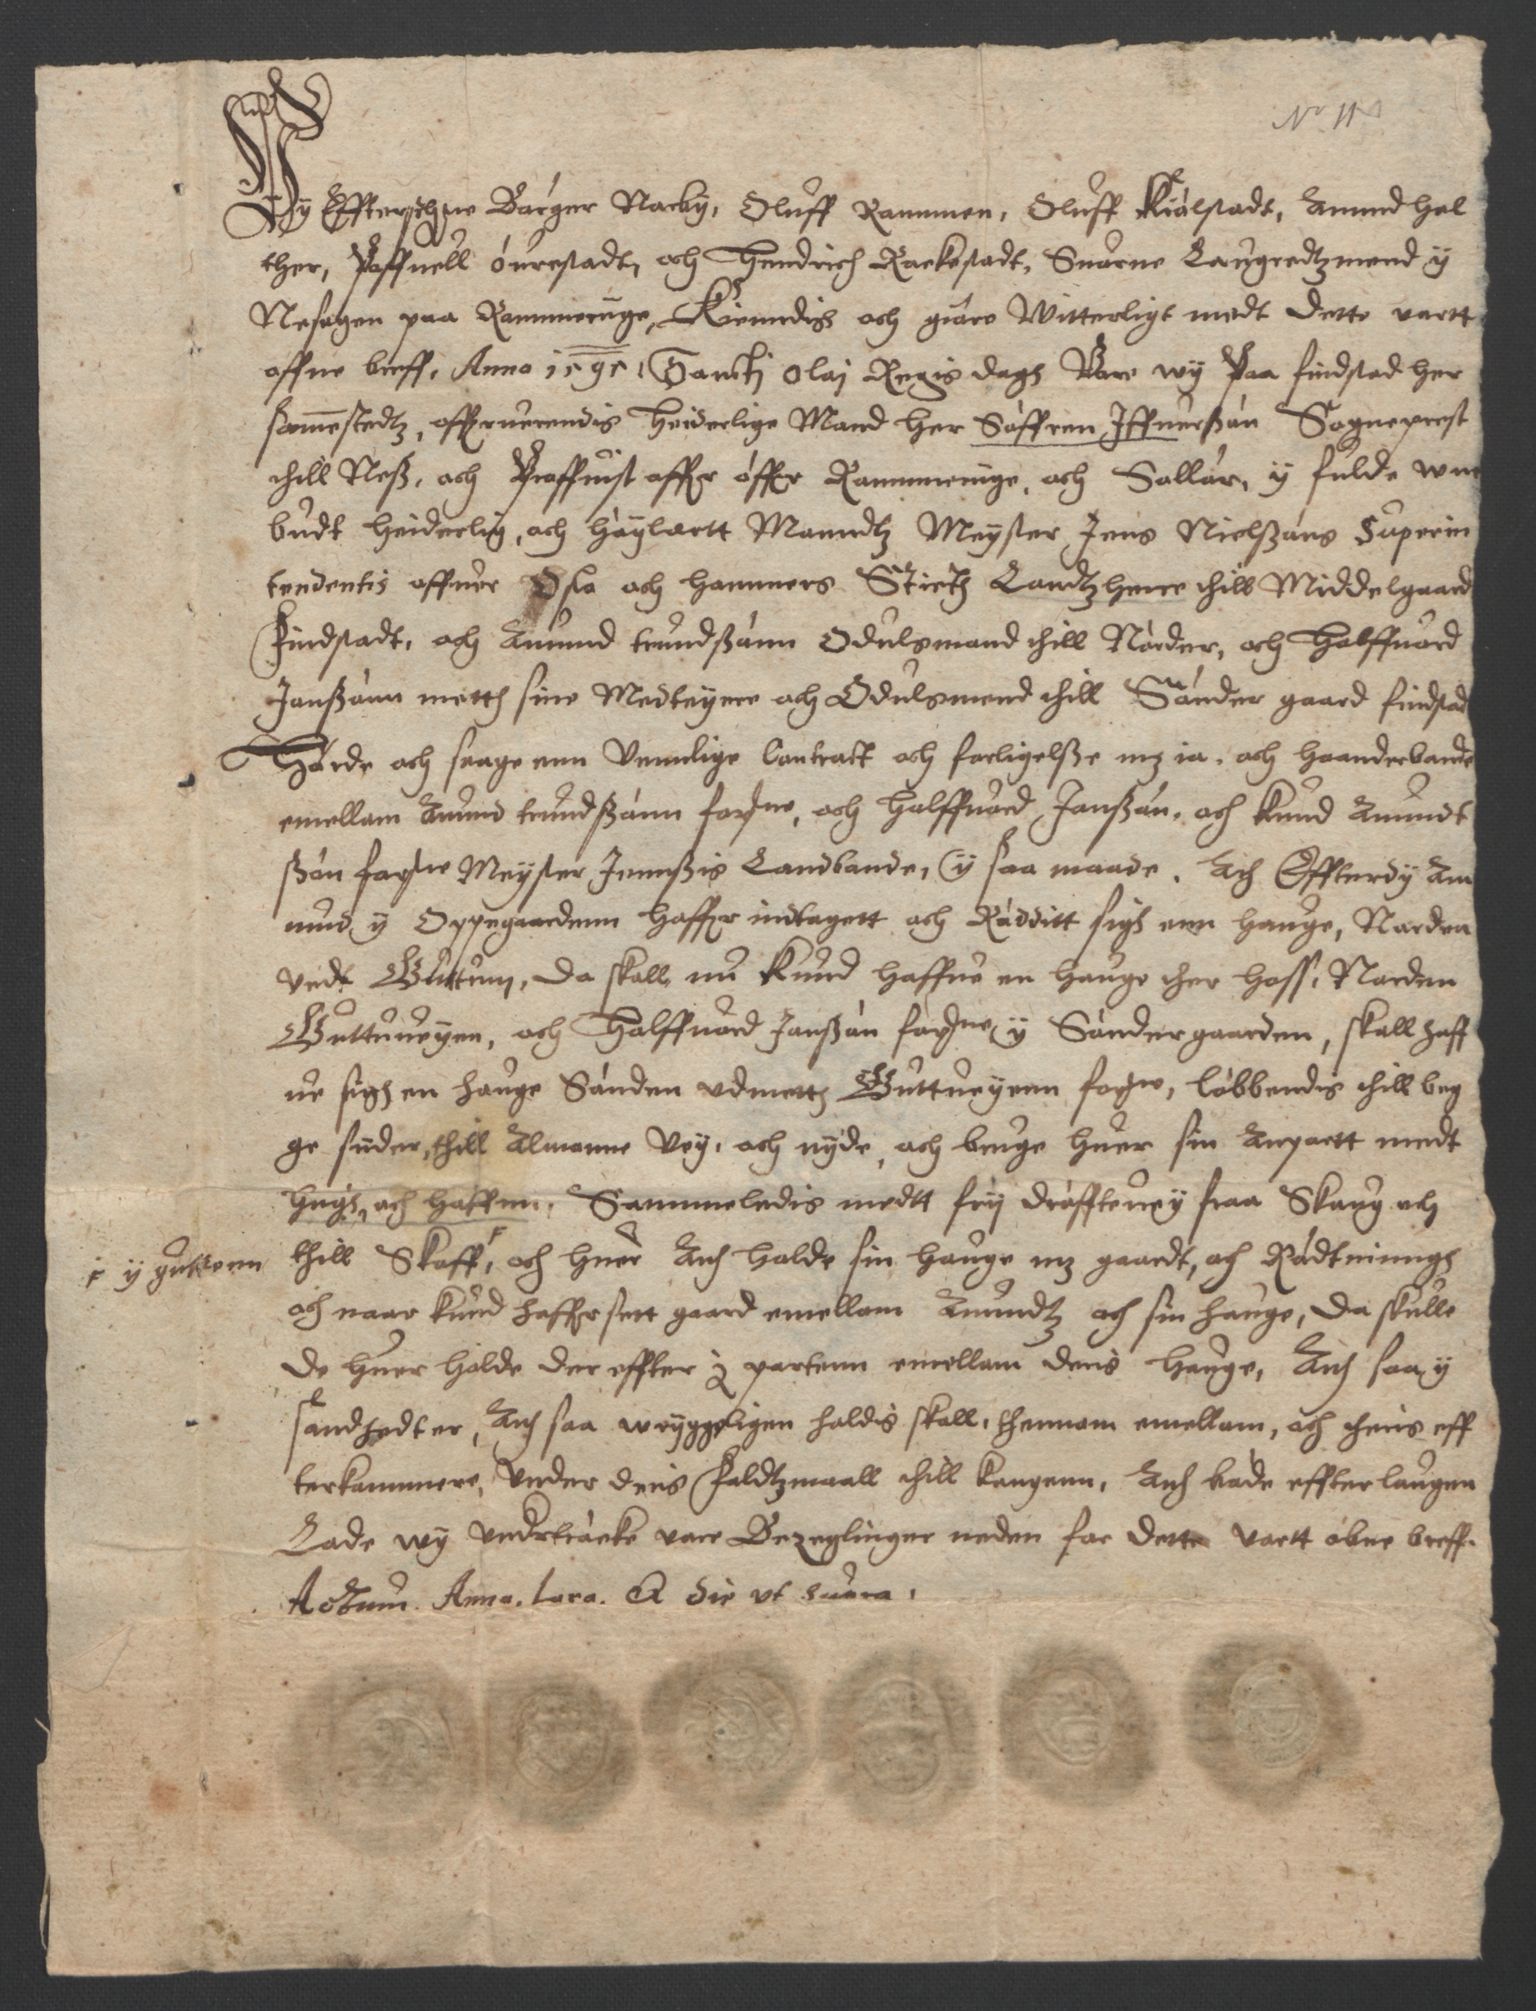 No 11
Wy Effterschne Börger Nacky, Oluff Rammen, Oluff Kiölstadt, Amund Hol
ther, Poffuell öurestadt, och Hendrich Rackestadt, Suorne Laugredtzmend ÿ
Nesszogen paa Rommerüge, Kienndis och giöre Witterligt medt dette vortt
offne breff, Anno 1595, Sancti Olaj Regis dagh Vare wÿ Paa findstad her
sammestedtz, offueruerendis Heiderlige Mand her Söffren Iffuerßön Sogneprest
thill Neß, och Proffuist offuer öffre Rommeruge, och Sollör, ÿ fulde
budt Heiderlig, och Höÿlertt Manndtz Meyster Jens Nielßöns Superin
tendentis offuer Oslo och Hammers Sticth Landtzherre thill Middelgaard
Findstadt, och Amund trundßönn Odulsmand thill Nörder, och Halffuord
Jonßönn metth sine Medteyere och Odulsmend thill Sönder gaard findstad
Hörde och saage enn Vennlige Contract och forligelße mz ia, och haanderbande
emellom Amund trundßönn forne, och Halffuord Jonßön, och knud Amundt
ßön forne Meyster Jennßis Landbonde, ÿ saa maade. Ath Effterdÿ Am
mund ÿ Oppegaardenn haffuer indtagett och Rödditt sigh enn hauge, Norden
vedt Guttum, da skall nu knud haffue en hauge ther hoss, Norden
Guttuueÿen, och Halffuord Jonßön forne ÿ Söndergaarden, skall haff
ue sigh en hauge Sönden vdmetth Guttueÿenn forne, löbbendis thill beg
ge sÿder, thill Almanne Veÿ, och nÿde, och bruge huer sin Anpartt medt
hugh, och haffnn, Sammeledis medtt frÿ dröffteueÿ fraa Skoug och
thill Skoff, och huer Ath holde sin hauge mz gaardt, och Rödtningh
ÿ gutuenn
och naar knud haffuer sett gaard emellom Amundtz och sin hauge, da skulle
de huer holde der effter parten emellom deris hauge, Ath saa ÿ
sandhedt er, Ath saa wrÿggeligen holdis skall, thennom emellom, och theris eff
terkommere, Vnder deris Faldtzmaall thill kongenn, Ath baade effter lougen
Lade wÿ vndrtröcke vore Bezeglinger neden for dette vortt obne breff.
Actum. Anno. Loco. Et die vt supra.